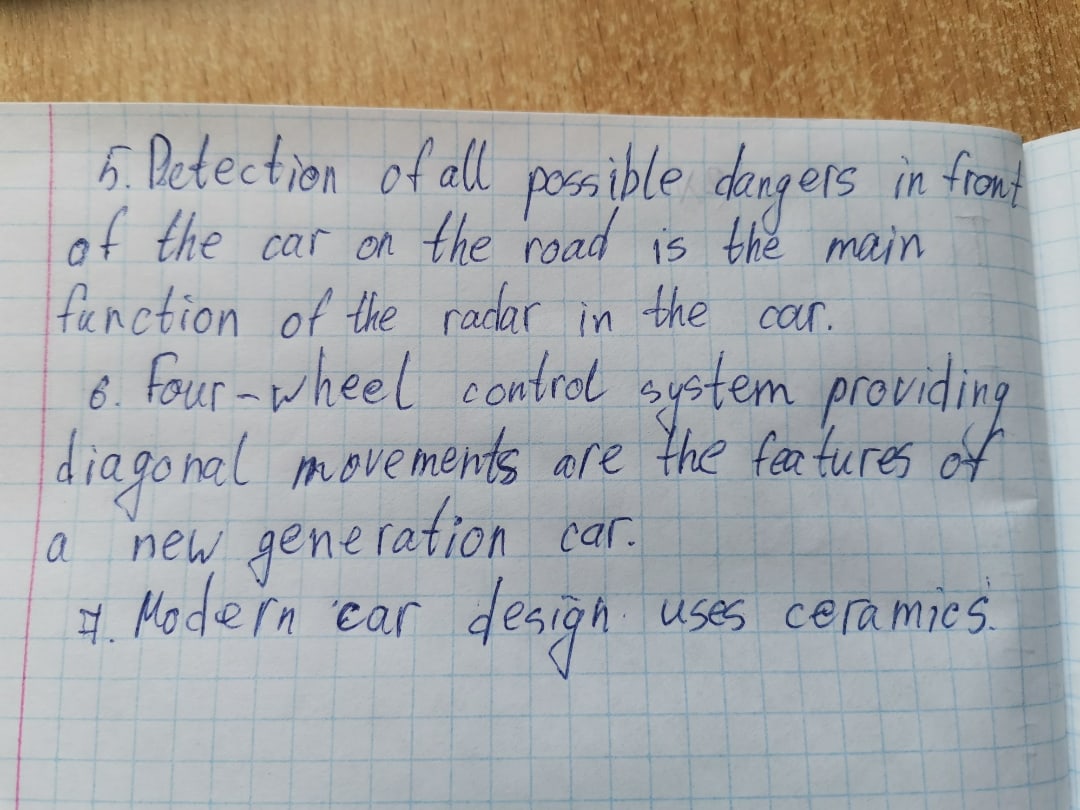 5. Detection of all possible dangers in front
of the car on the road is the main
function of the radar in the car.
6. Four-wheel control system providing
diagonal movements are the features of
a new generation car.
7. Modern car design uses ceramics.